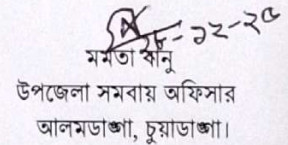 ২৮-১২-২৫
মমতা বানু
উপজেলা সমবায় অফিসার
আলমডাঙ্গা, চুয়াডাঙ্গা।